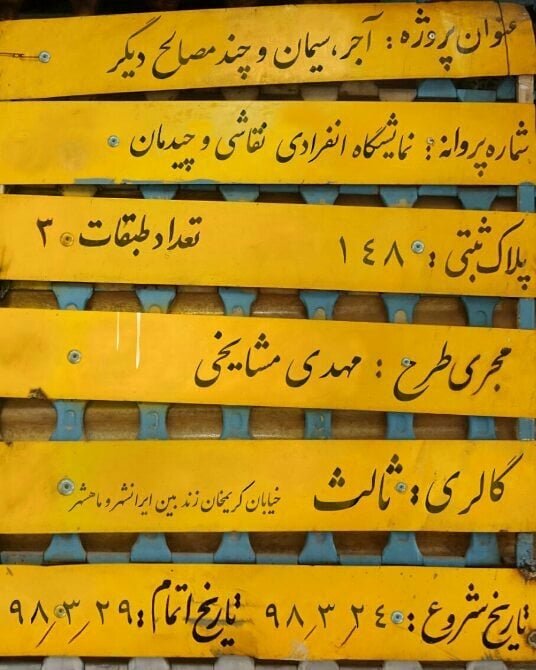 عنوان پروژه : آجر، سیمان و چند مصالح دیگر
شماره پروانه : نمایشگاه انفرادی نقاشی و چیدمان
پلاک ثبتی : ۱۴۸ تعداد طبقات : ۳
مجری طرح : مهدی مشایخی
گالری : ثالث خیابان کریمخان زند بین ایرانشهر و ماهشهر
تاریخ شروع : ۹۸٫۳٫۲۴ تاریخ اتمام : ۹۸٫۳٫۲۹